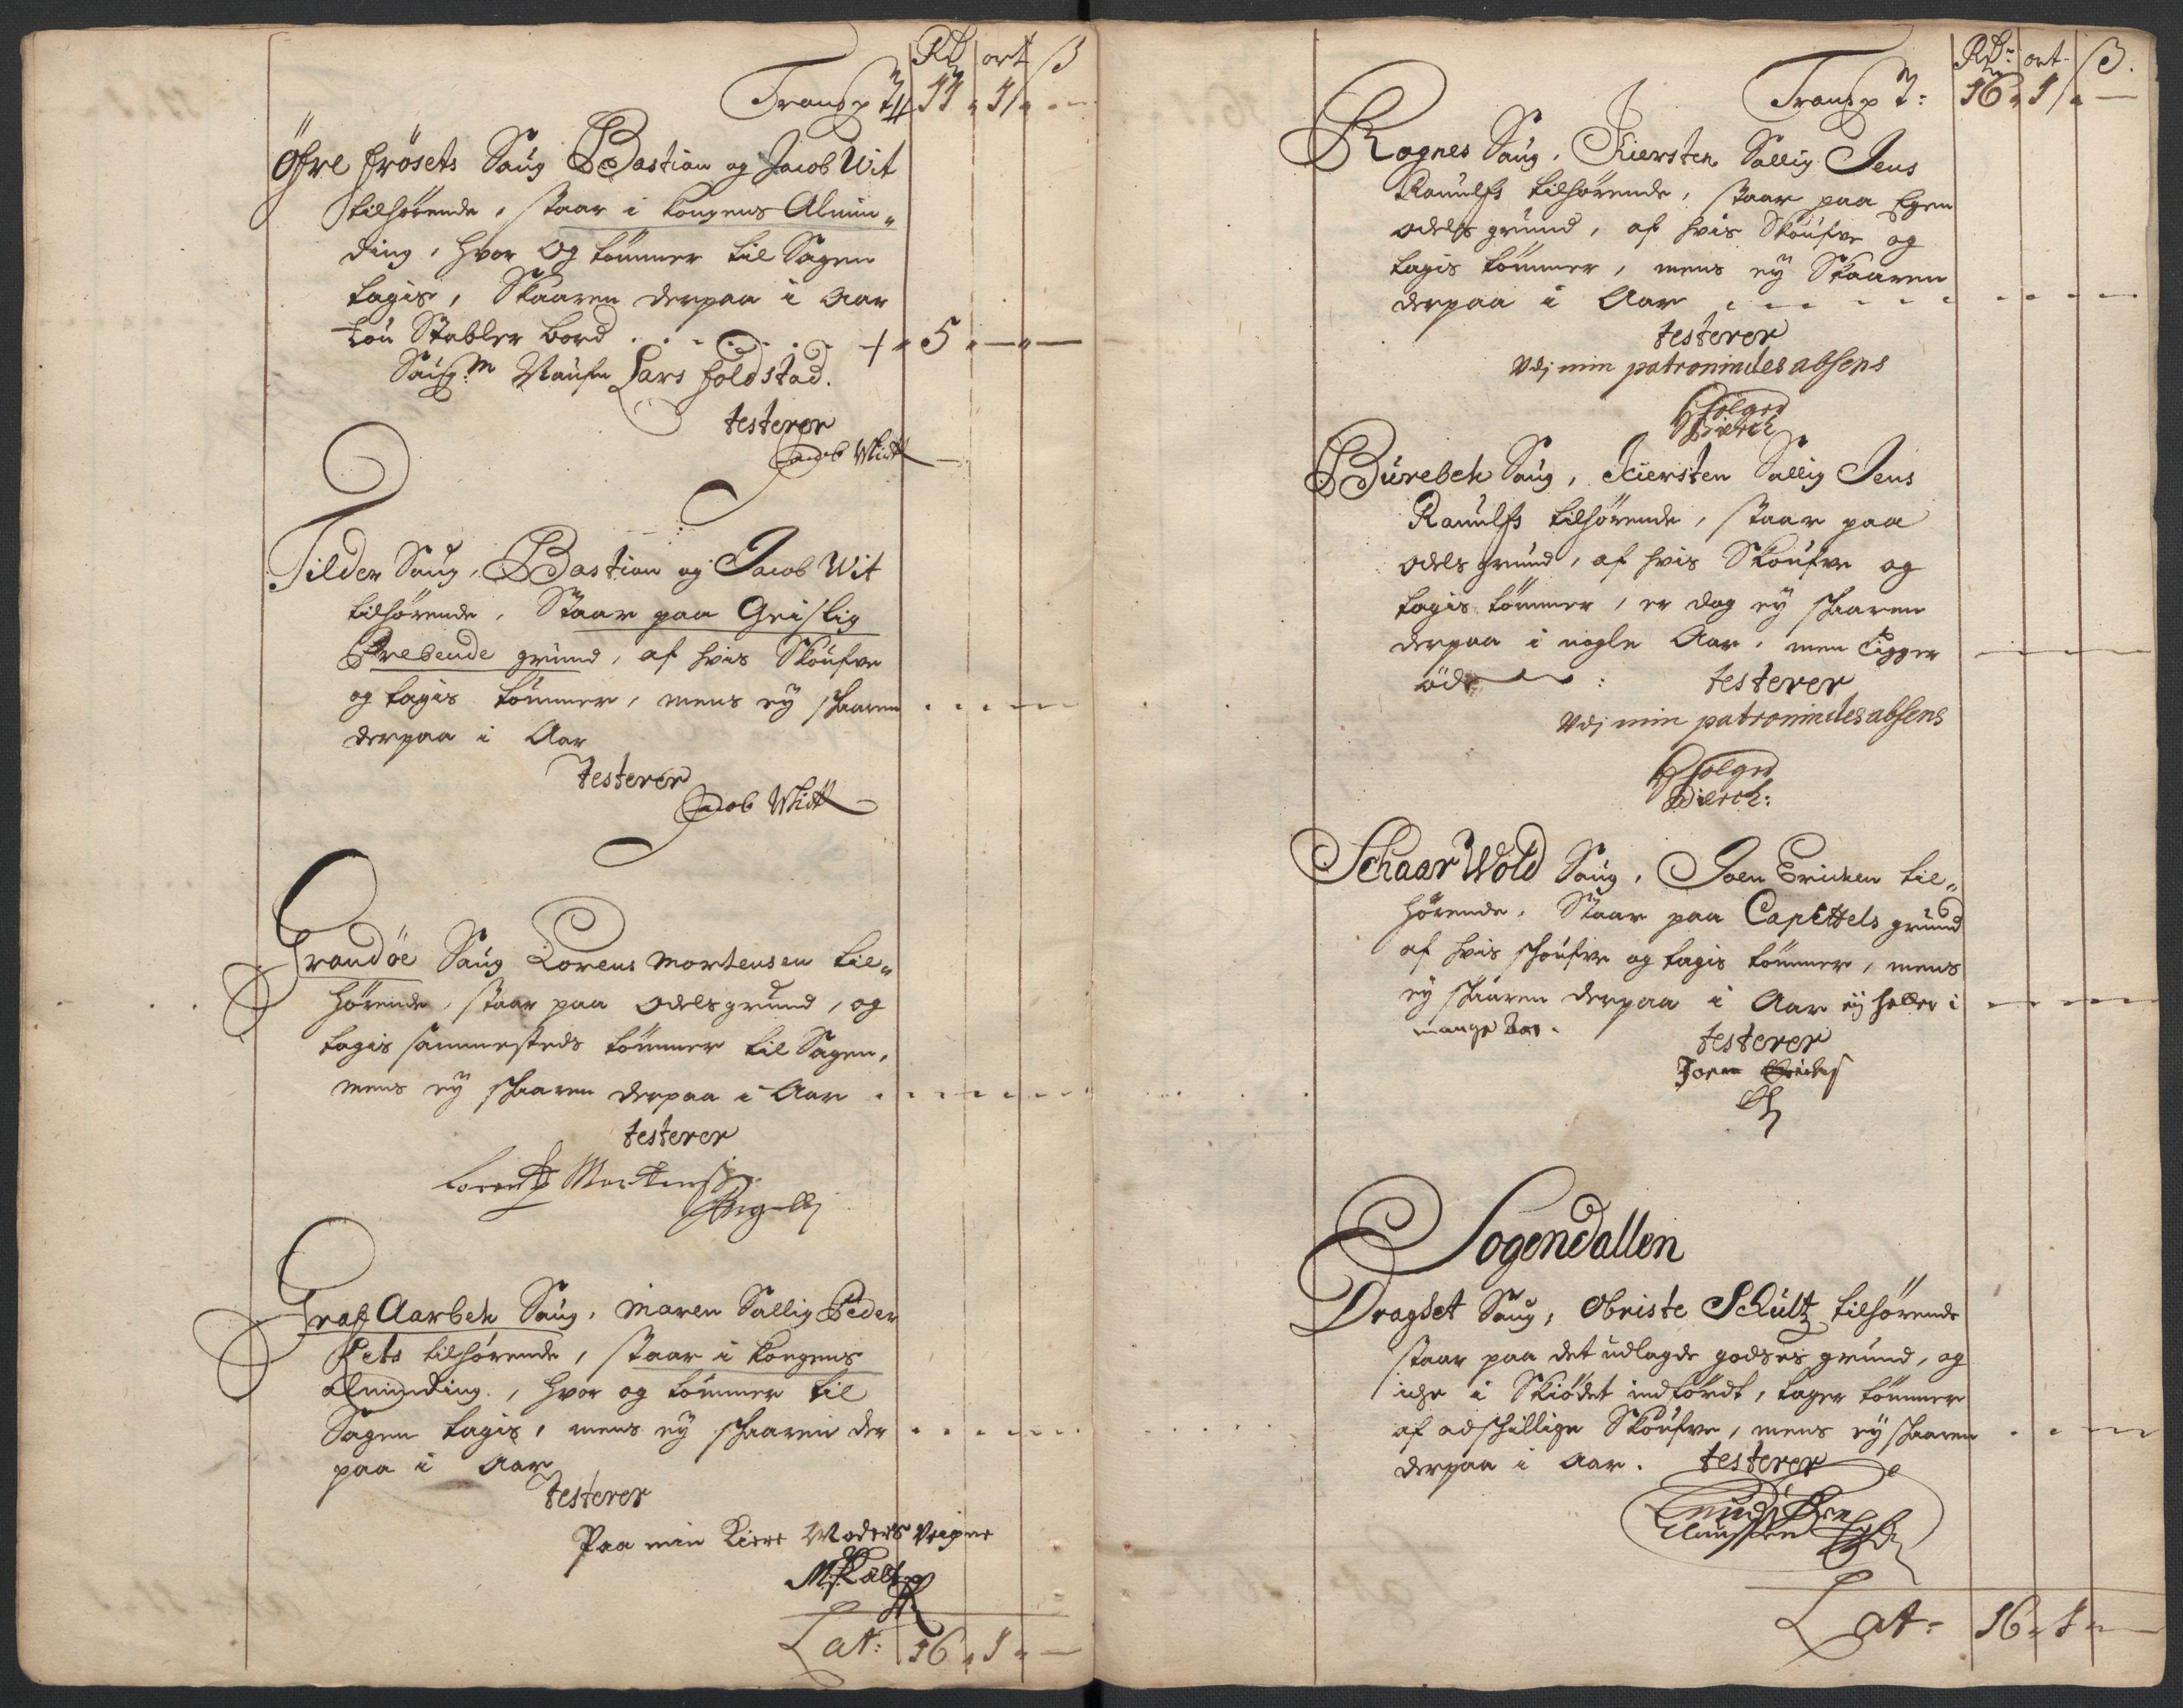 Rdr ort ß
Transp 11 " 1 " —
Öfre frösets Saug Bastian og Jacob Wit
tilhörende, staar i kongens Almin„
ding, hvor og tömmer til Sagen
tagis, Skaaren derpaa i Aar
tou Stabler bord . . . . . . + " 5 " — " —
Lars foldstad.
testerer
Jacob Widt
Tilder Saug, Bastian og Jacob Wit
tilhörende, Staar paa Geistlig
Prebende grund, af hvis Skoufve
og tagis tömmer, mens ey skaaren
derpaa i Aar
Testerer
Jacob Widt
Trandöe Saug Lorens Mortensen til„
hörende, staar paa odelsgrund, og
tagis sammesteds tömmer til Sagen,
mens ey skaaren derpaa i Aar
testerer
Lorentz Mortens
Graf Aarbek Saug, Maren Sallig Peder
tilhörende, staar i kongens
Alminding, hvor og tömmer til
Sagen tagis, mens ey skaaren der
paa i Aar
Testerer
Paa min Kiere Moders Veigne
Lat: 16 " 1 " —
Rdr: ort ß.
Transp : 16 " 1 " —
Rognes Saug, Kiersten Sallig Jens
Ranulfs tilhörende, staar paa Egen
odels grund, af hvis Skoufve og
tagis tömmer, mens ey Skaaren
derpaa i Aar
testerer
Udi min patronindes absens
Holger
Bürebek Saug, Kiersten Sallig Jens
Ranulfs tilhörende, staar paa
odels grund, af hvis Skoufve og
tagis tömmer, er dog ey skaaren
derpaa i nogle Aar, men ligger
öde : testerer
Udi min patronindes absens
Holger
Schaar Wold Saug, Joen Ericksen til„
hörende, Staar paa Capittels grund
af hvis skoufve og tagis tömmer, mens
ey skaaren derpaa i Aar eÿ heller i
mange Aar.
testerer
Joen
Sogendallen
Dragset Saug, Obriste Schultz tilhörende
staar paa det udlagde godses grund, og
icke i Skiödet indfördt, tager tömmer
af adskillige Skoufve, mens ey skaaren
derpaa i Aar. testerer
Lat: 16 " 1 " —